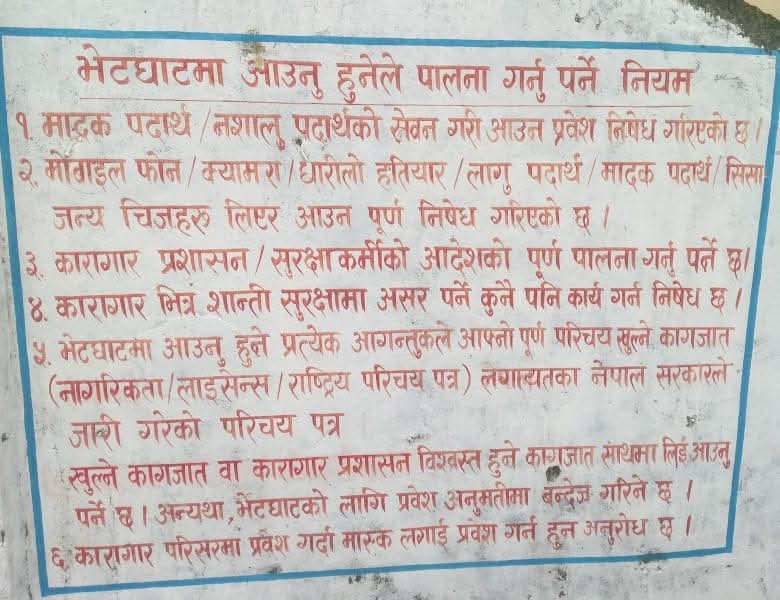 भेटघाटमा आउनु हुनेले पालना गर्नु पर्ने नियम
१. मादक पदार्थ/नशालु पदार्थको सेवन गरी आउन प्रवेश निषेध गरिएको छ।
२. मोवाइल फोन/क्यामरा/धारीलो हतियार/लागु पदार्थ/मादक पदार्थ/सिसा
जन्य चिजहरु लिएर आउन पूर्ण निषेध गरिएको छ।
३. कारागार प्रशासन/सुरक्षाकर्मीको आदेशको पूर्ण पालना गर्नु पर्ने छ।
४. कारागार भित्र शान्ती सुरक्षामा असर पर्ने कुनै पनि कार्य गर्न निषेध छ।
५. भेटघाटमा आउनु हुने प्रत्येक आगन्तुकले आफ्नो पूर्ण परिचय खुल्ने कागजात
(नागरिकता/लाइसेन्स/राष्ट्रिय परिचय पत्र) लगायतका नेपाल सरकारले
जारी गरेको परिचय पत्र
खुल्ने कागजात वा कारागार प्रशासन विश्वस्त हुने कागजात साथमा लिई आउनु
पर्ने छ। अन्यथा, भेटघाटको लागि प्रवेश अनुमतीमा बन्देज गरिने छ।
६. कारागार परिसरमा प्रवेश गर्दा मास्क लगाई प्रवेश गर्न हुन अनुरोध छ।